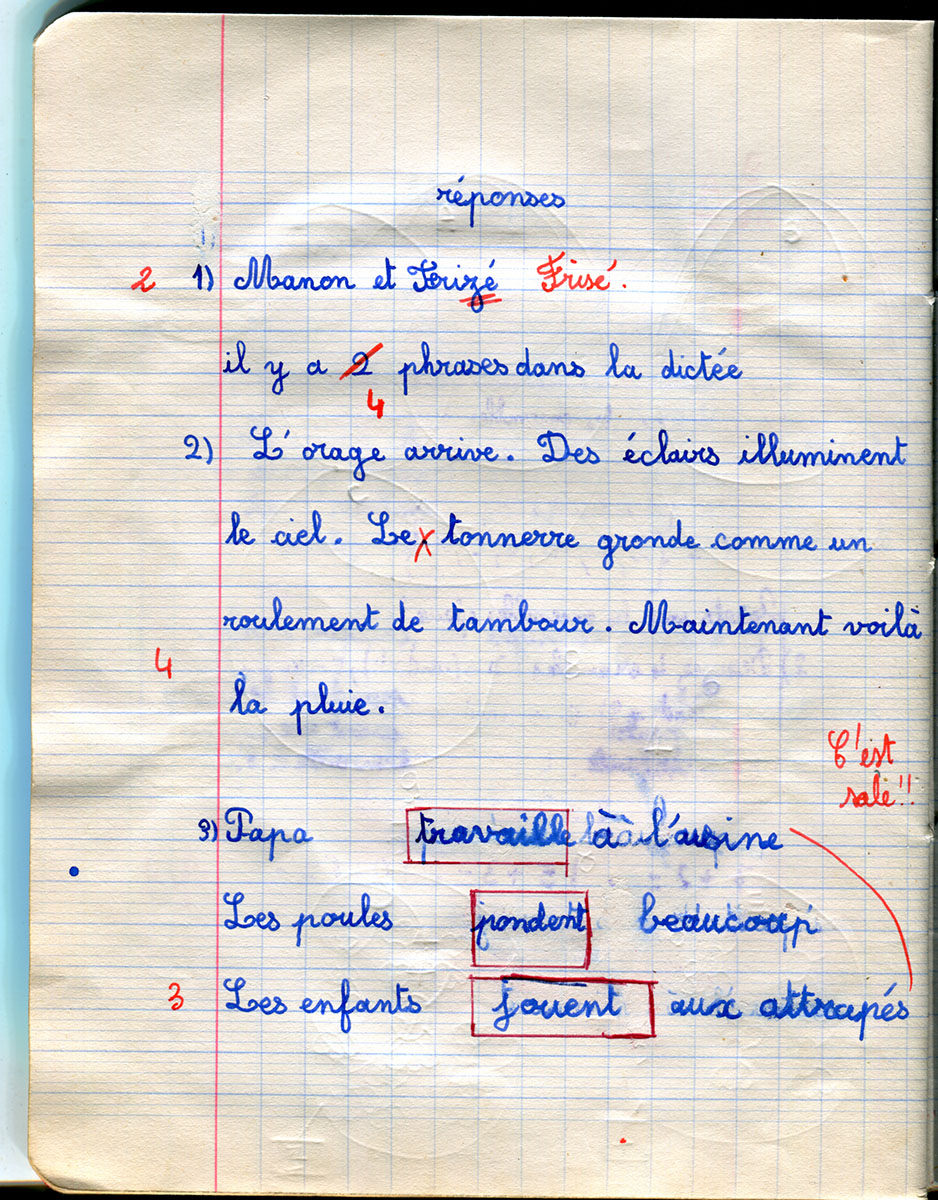 réponses
2 1) Manon et Frizé Frisé.
il y a 2 phrases dans la dictée
4
2) L'orage arrive. Des éclairs illuminent
le ciel. Le tonnerre gronde comme un
roulement de tambour. Maintenant voilà
4
la pluie.
C'est
sale!!
3) Papa travaille à l'usine
Les poules pondent beaucoup
3 Les enfants jouent aux attrapés